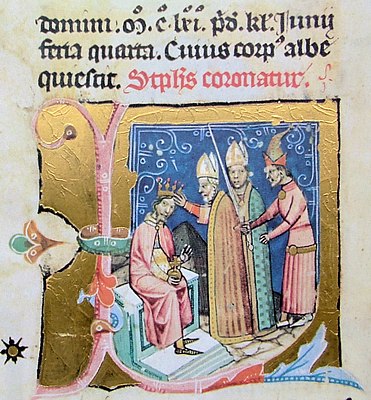 domini. Mͦ. Cͦ. lxi. pͦd. kl'. Junij
feria quarta. Cuius corpꝰ albe
quiescit. Stephs coronatur.